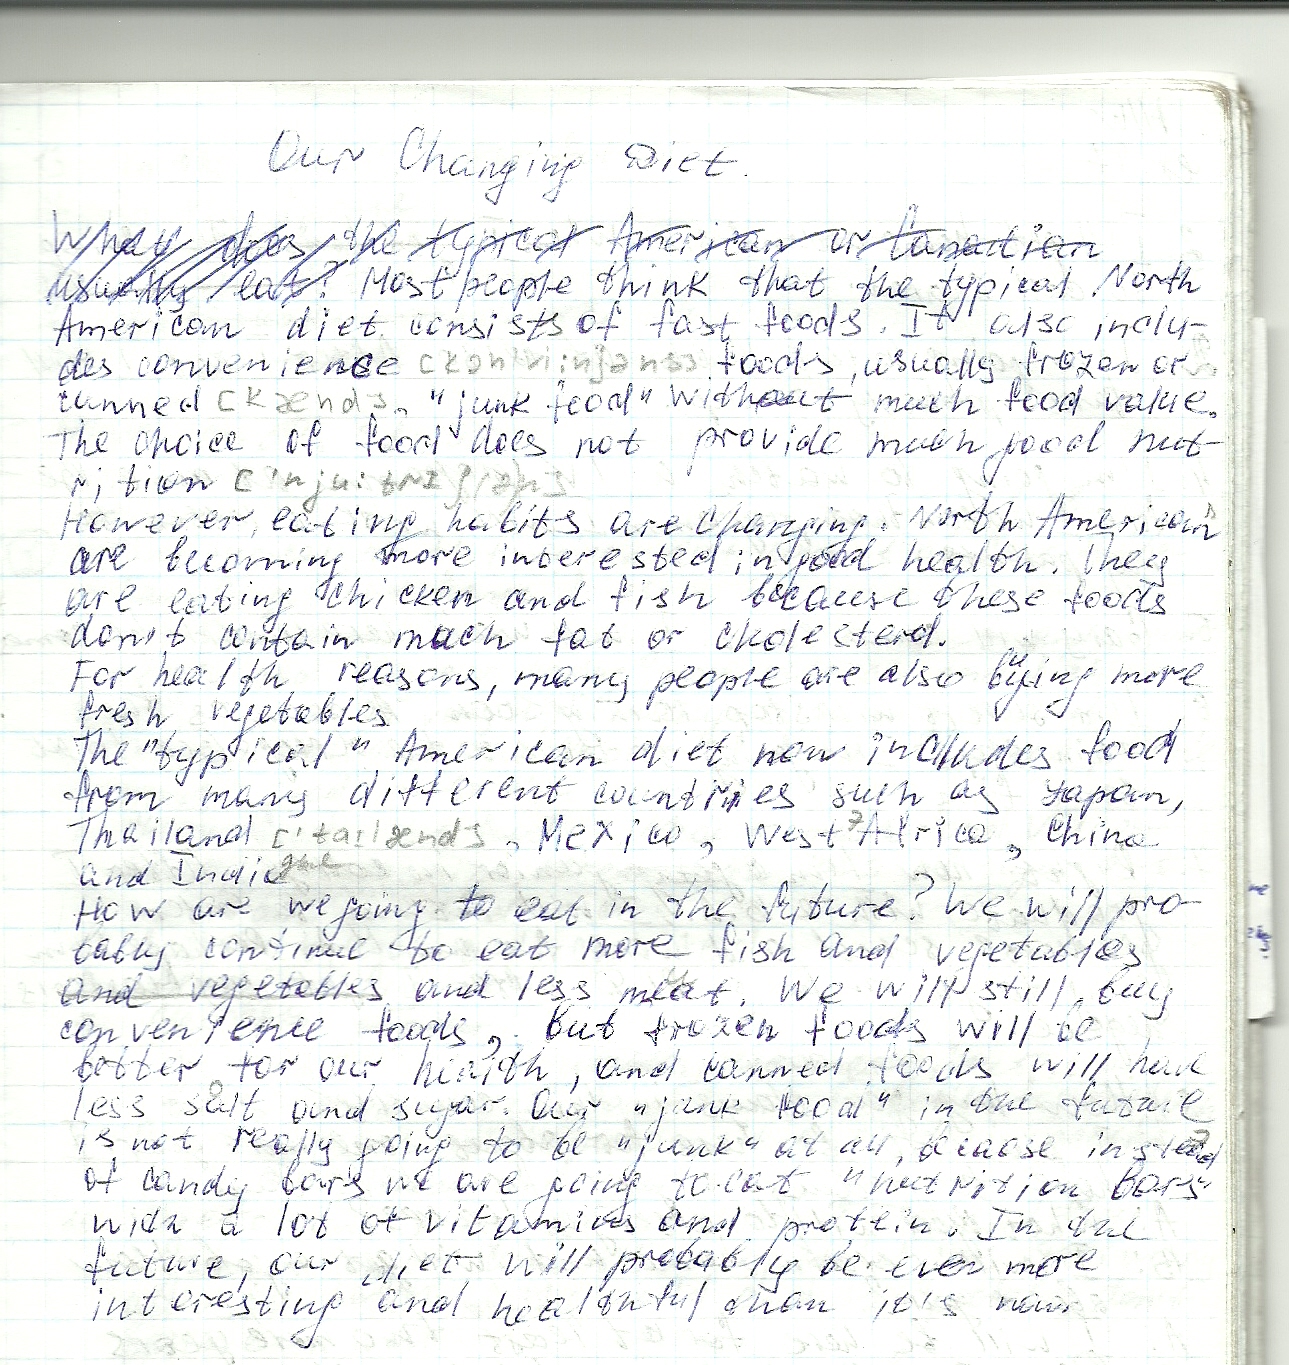 Our Changing Diet.
Whay does the typical American or Canadian
usually eat? Most people think that the typical North
American diet consists of fast foods. It also inclu-
des convenience foods, usually frozen or
canned "junk food" without much food value.
The choice of food does not provide much good nut-
rition
However, eating habits are changing. North American
are becoming more interested in good health. They
are eating chicken and fish because these foods
don't contain much fat or cholesterol.
For health reasons, many people are also buying more
fresh vegetables
The "typical" American diet now includes food
from many different countries such as Japan,
Thailand ['tailænd], Mexico, West Africa, China
and India
How are we going to eat in the future? We will pro-
bably continue to eat more fish and vegetables
and vegetables and less meat. We will still buy
convenience foods, but frozen foods will be
better for our health, and canned foods will have
less salt and sugar. Our "junk food" in the future
is not really going to be "junk" at all, because instead
of candy bars we are going to eat "nutrition bars"
with a lot of vitamins and protein. In the
future, our diet will probably be even more
interesting and healthful than it's now